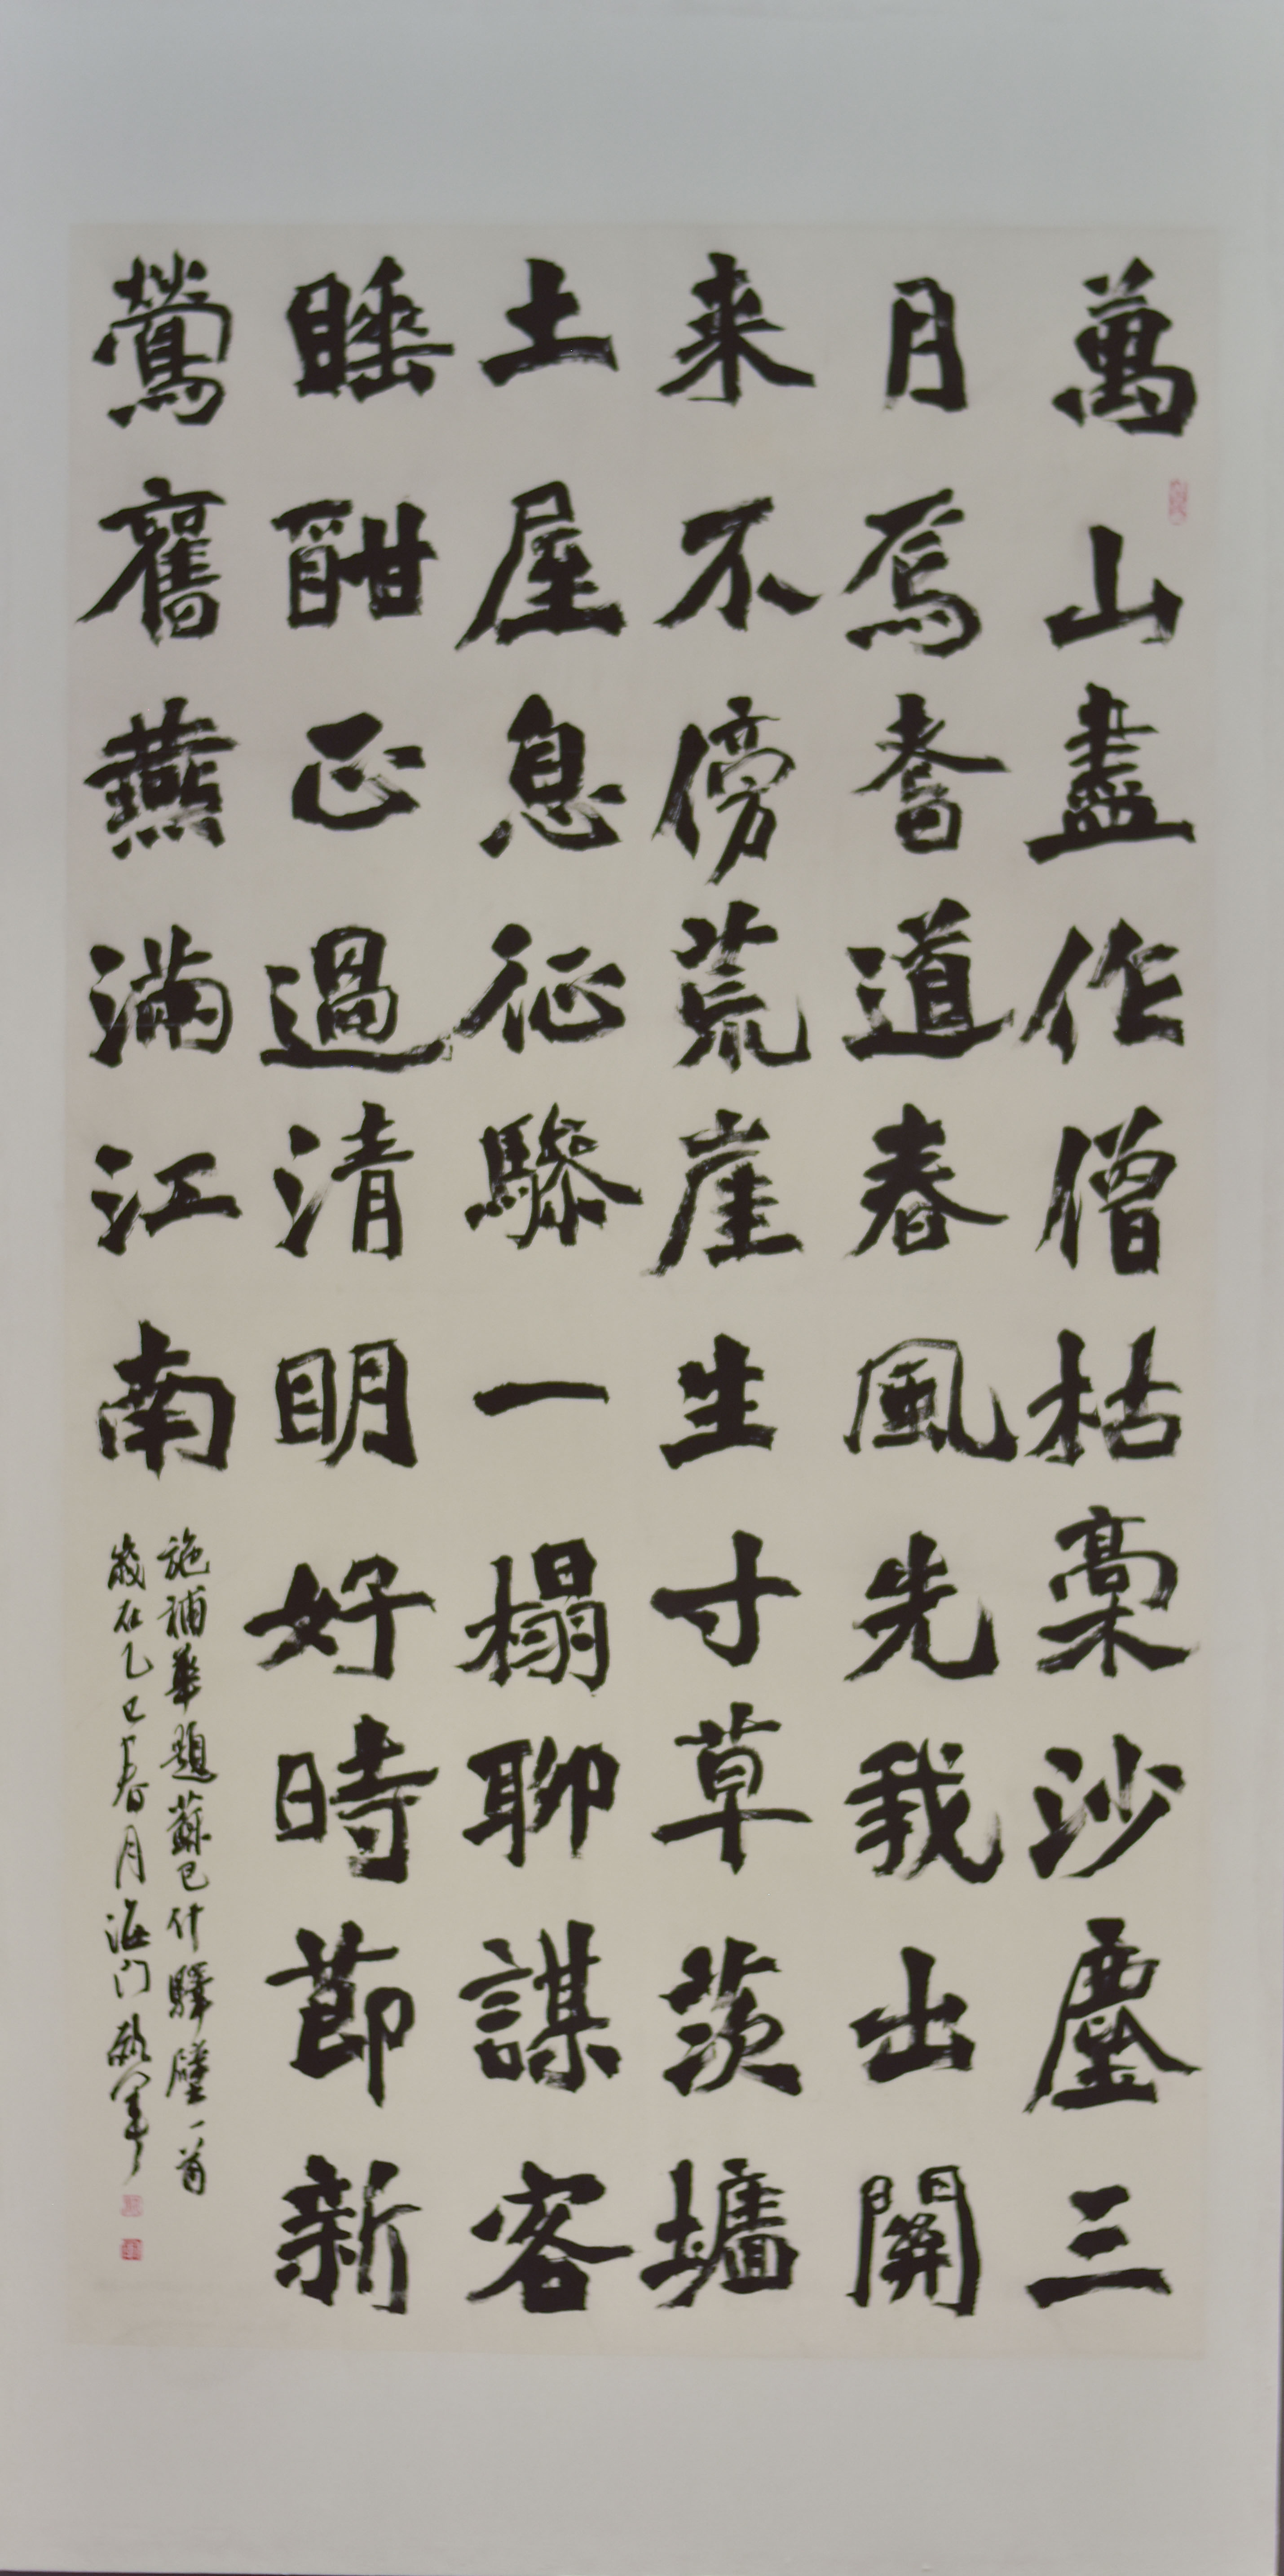 萬山盡作僧枯槀沙塵三
月焉耆道春風先我出關
来不傍荒崖生寸草茨墻
土屋息征驂一榻聊謀客
睡酣正過清明好時節新
鶯舊燕滿江南
施補華題蘇巴什驛壁一首
歲在乙巳春月海門